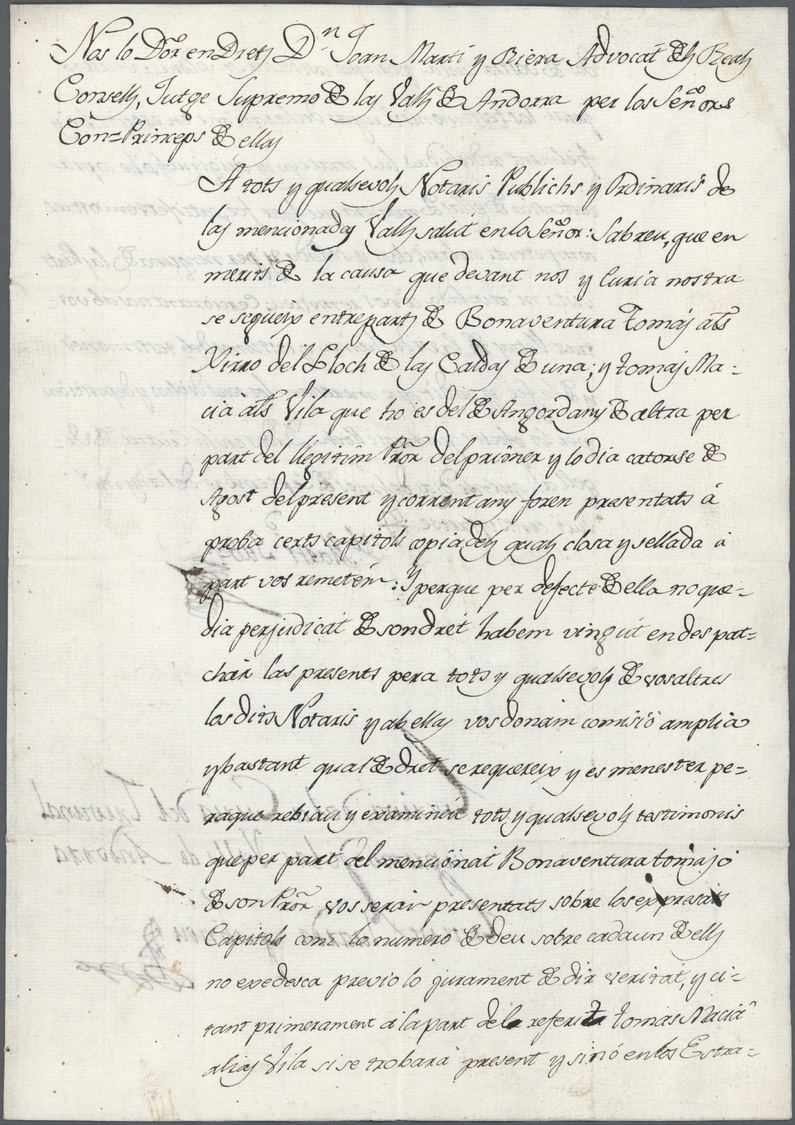 Nos lo Dor̃ en Drets Dn Joan Martí y Riera Advocat dels Reals
Consells, Jutge Supremo de las Valls de Andorra per los Señors
Con=Princeps de ellas
A tots y qualsevols Notaris Publichs y Ordinaris de
las mencionadas Valls salut en lo Señor: Sabreu, que en
merits de la causa que devant nos y Curia nostra
se segueix entre parts de Bonaventura Tomás als̃
Xirro del Lloch de las Caldas de una; y Tomas Ma-
cia als̃ Vila que ho es del de Angordany de altra per
part del llegitim Pror̃ del primer y lo dia catorse de
Agost del present y corrent any foren presentats á
proba certs capitols copia dels quals closa y sellada a
part vos remetem: Y perque per defecte de ella no que-
dia perjudicat de son dret habem vingut en despat=
char las presents pera tots y qualsevols de vosaltres
los dits Notaris y ab ellas vos donam comisió amplia
y bastant qual de dret se requereix y es menester pe=
raque rebiau y examineu tots y qualsevols testimonis
que per part del mencionat Bonaventura Tomás ó
de son Pror̃ vos seran presentats sobre los expressats
Capitols com lo numero de deu sobre cada un de ells
no excedesca previo lo jurament de dir veritat, y ci-
tant primerament á la part del referit Tomas Maciá
alias Vila si se trobará present y sinó en los Estra=